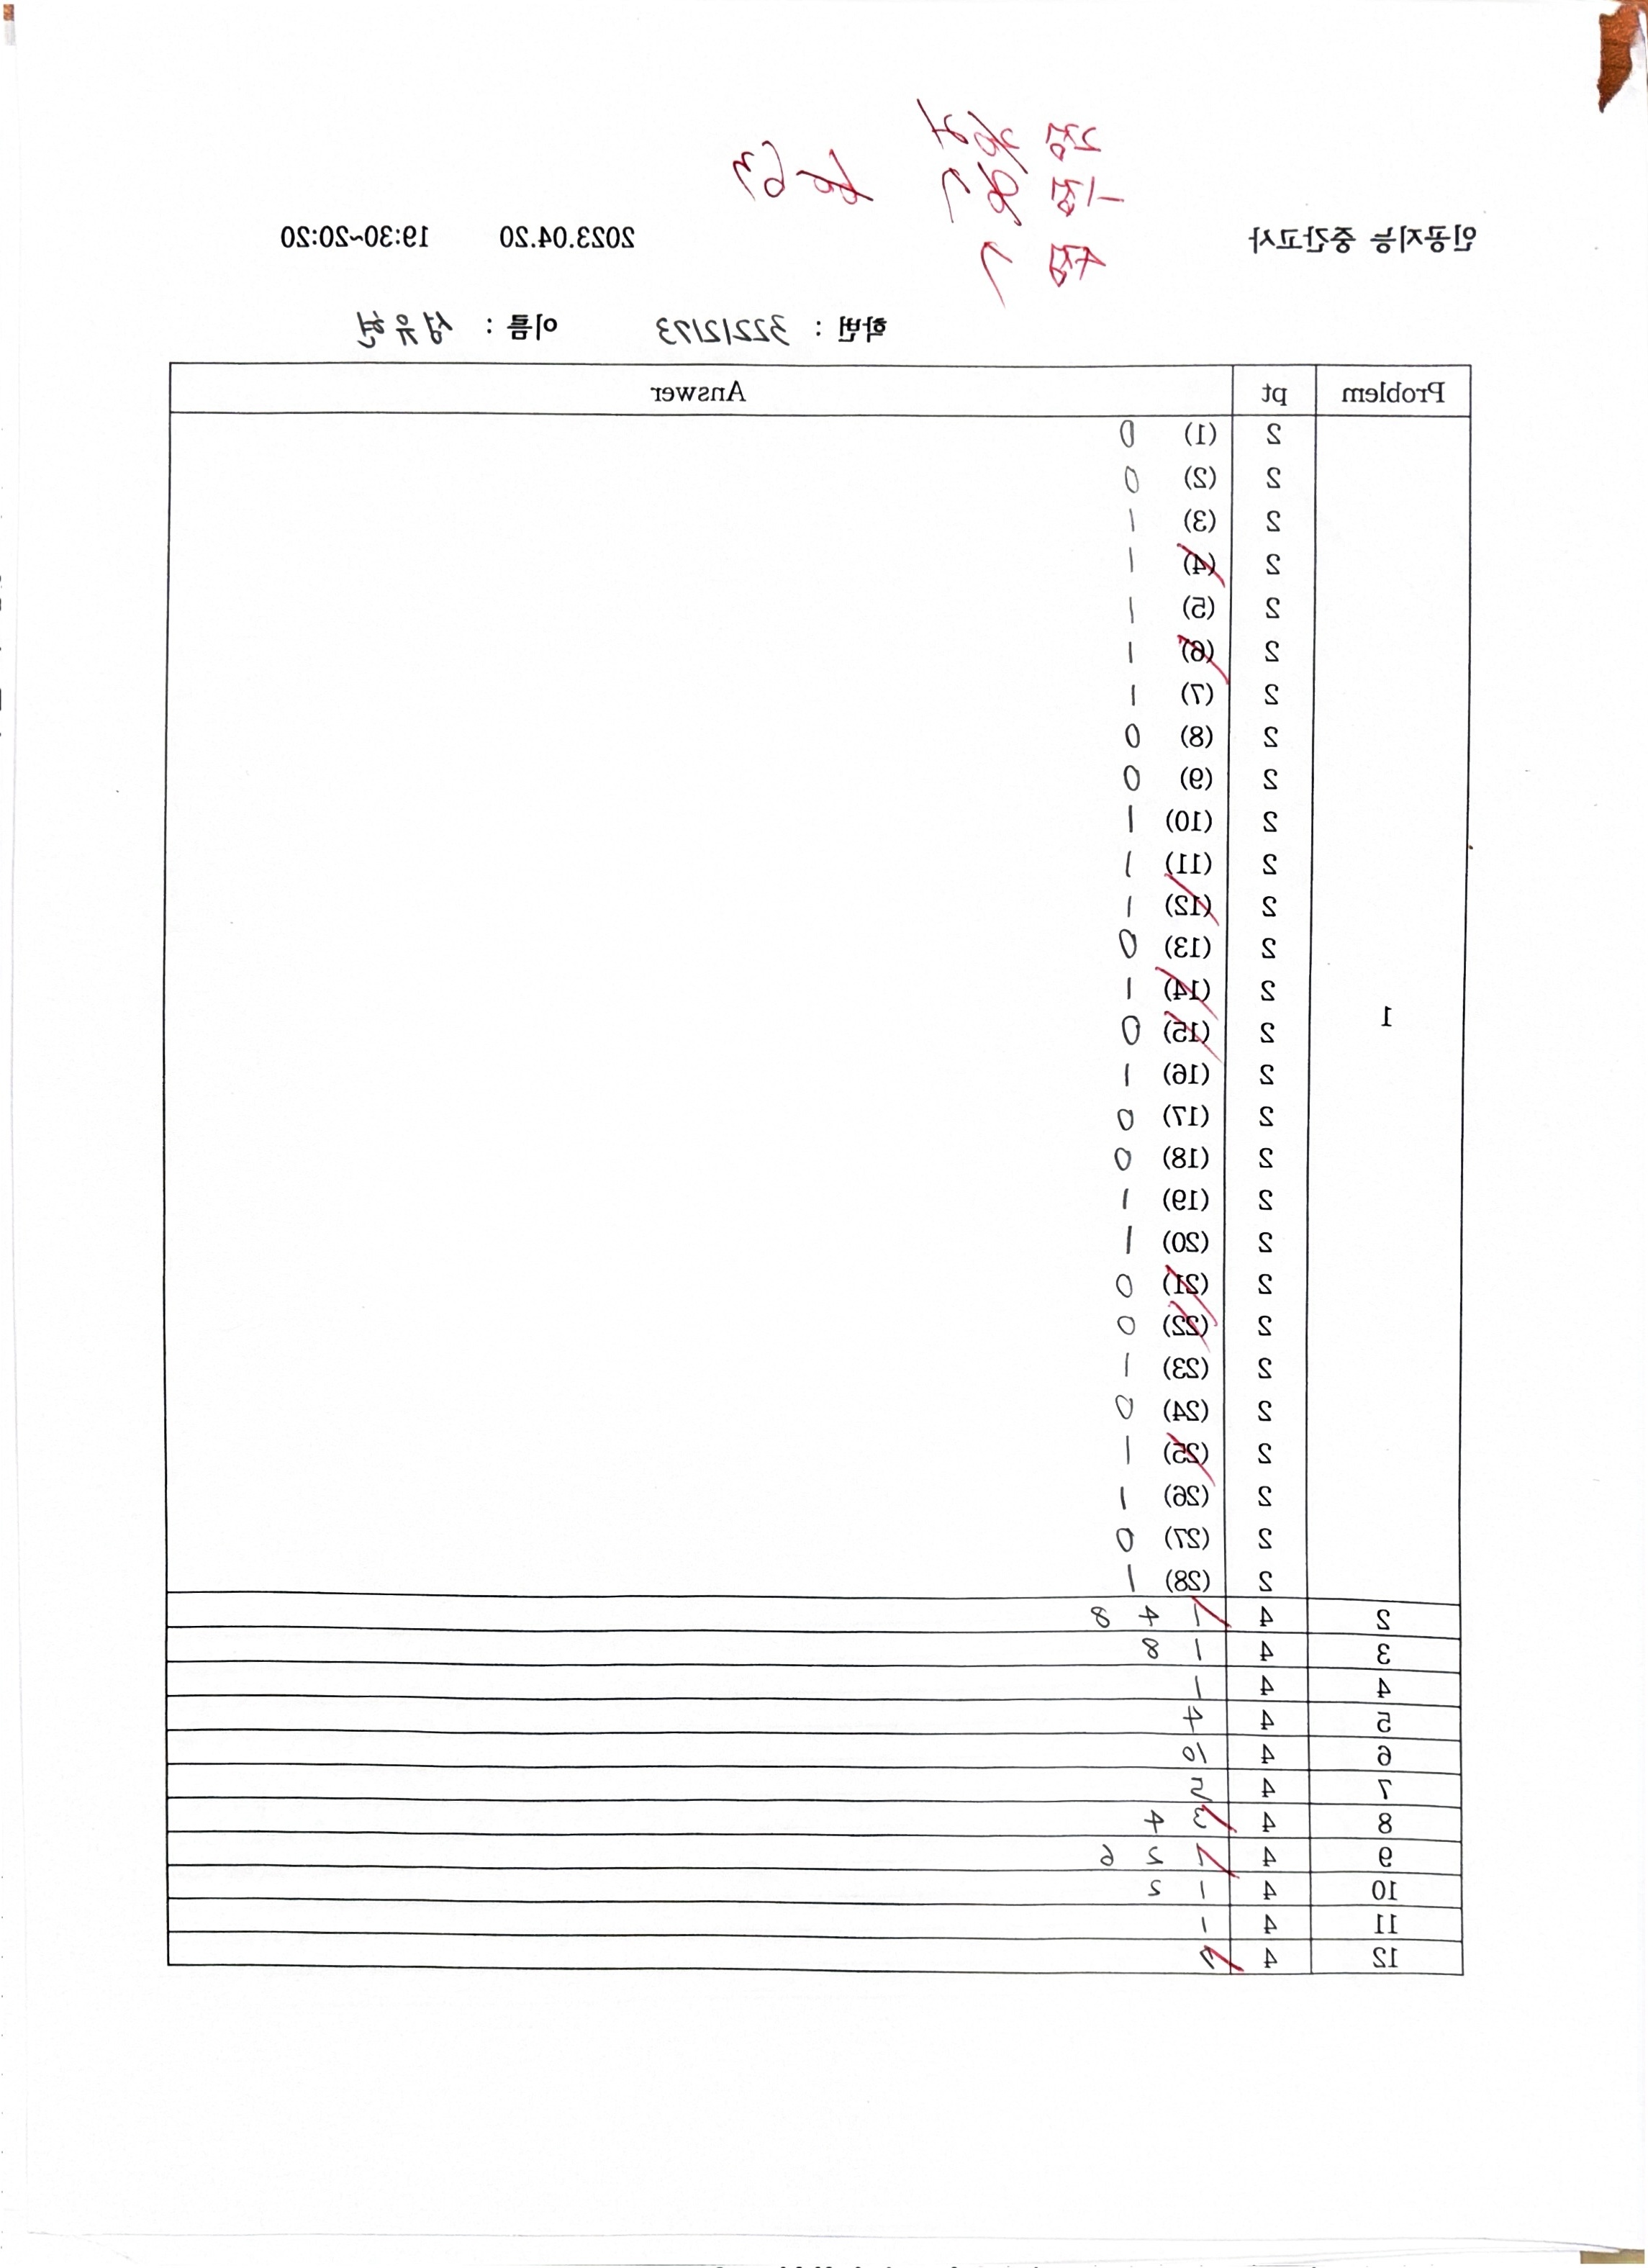 2점
1점
4점
63
인공지능 중간고사 2023.04.20 19:30~20:20
학번 : 32212173 이름 : 성유현
Problem pt Answer
1
2 (1) 0
2 (2) 0
2 (3) 1
2 (4) 1
2 (5) 1
2 (6) 1
2 (7) 1
2 (8) 0
2 (9) 0
2 (10) 1
2 (11) 1
2 (12) 1
2 (13) 0
2 (14) 1
2 (15) 0
2 (16) 1
2 (17) 0
2 (18) 0
2 (19) 1
2 (20) 1
2 (21) 0
2 (22) 0
2 (23) 1
2 (24) 0
2 (25) 1
2 (26) 1
2 (27) 0
2 (28) 1
2 4 1 4 8
3 4 1 8
4 4 1
5 4 4
6 4 10
7 4 5
8 4 3 4
9 4 1 2 6
10 4 1 2
11 4 1
12 4